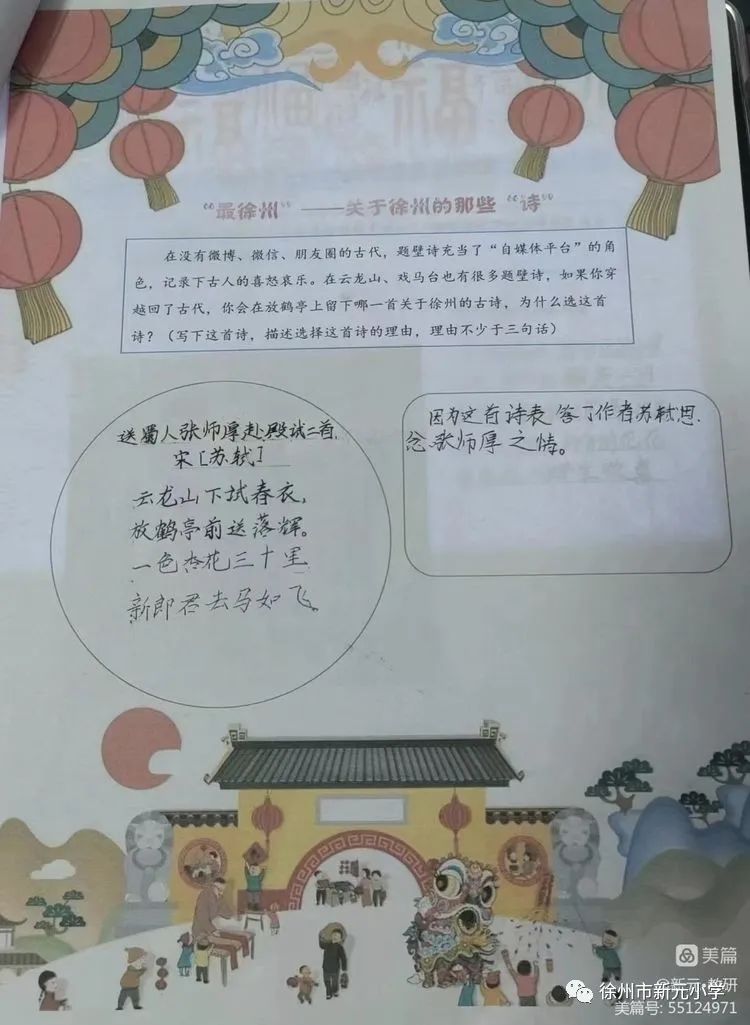 “最徐州” ——关于徐州的那些 “诗”
在没有微博、微信、朋友圈的古代，题壁诗充当了“自媒体平台”的角
色，记录下古人的喜怒哀乐。在云龙山、戏马台也有很多题壁诗，如果你穿
越回了古代，你会在放鹤亭上留下哪一首关于徐州的古诗，为什么选这首
诗？（写下这首诗，描述选择这首诗的理由，理由不少于三句话）
送蜀人张师厚赴殿试二首
宋[苏轼]
云龙山下试春衣，
放鹤亭前送落辉。
一色杏花三十里
新郎君去马如飞。
因为这首诗表答了作者苏轼思
念张师厚之情。
美篇
@新元·教研
徐州市新元小学
美篇号: 55124971